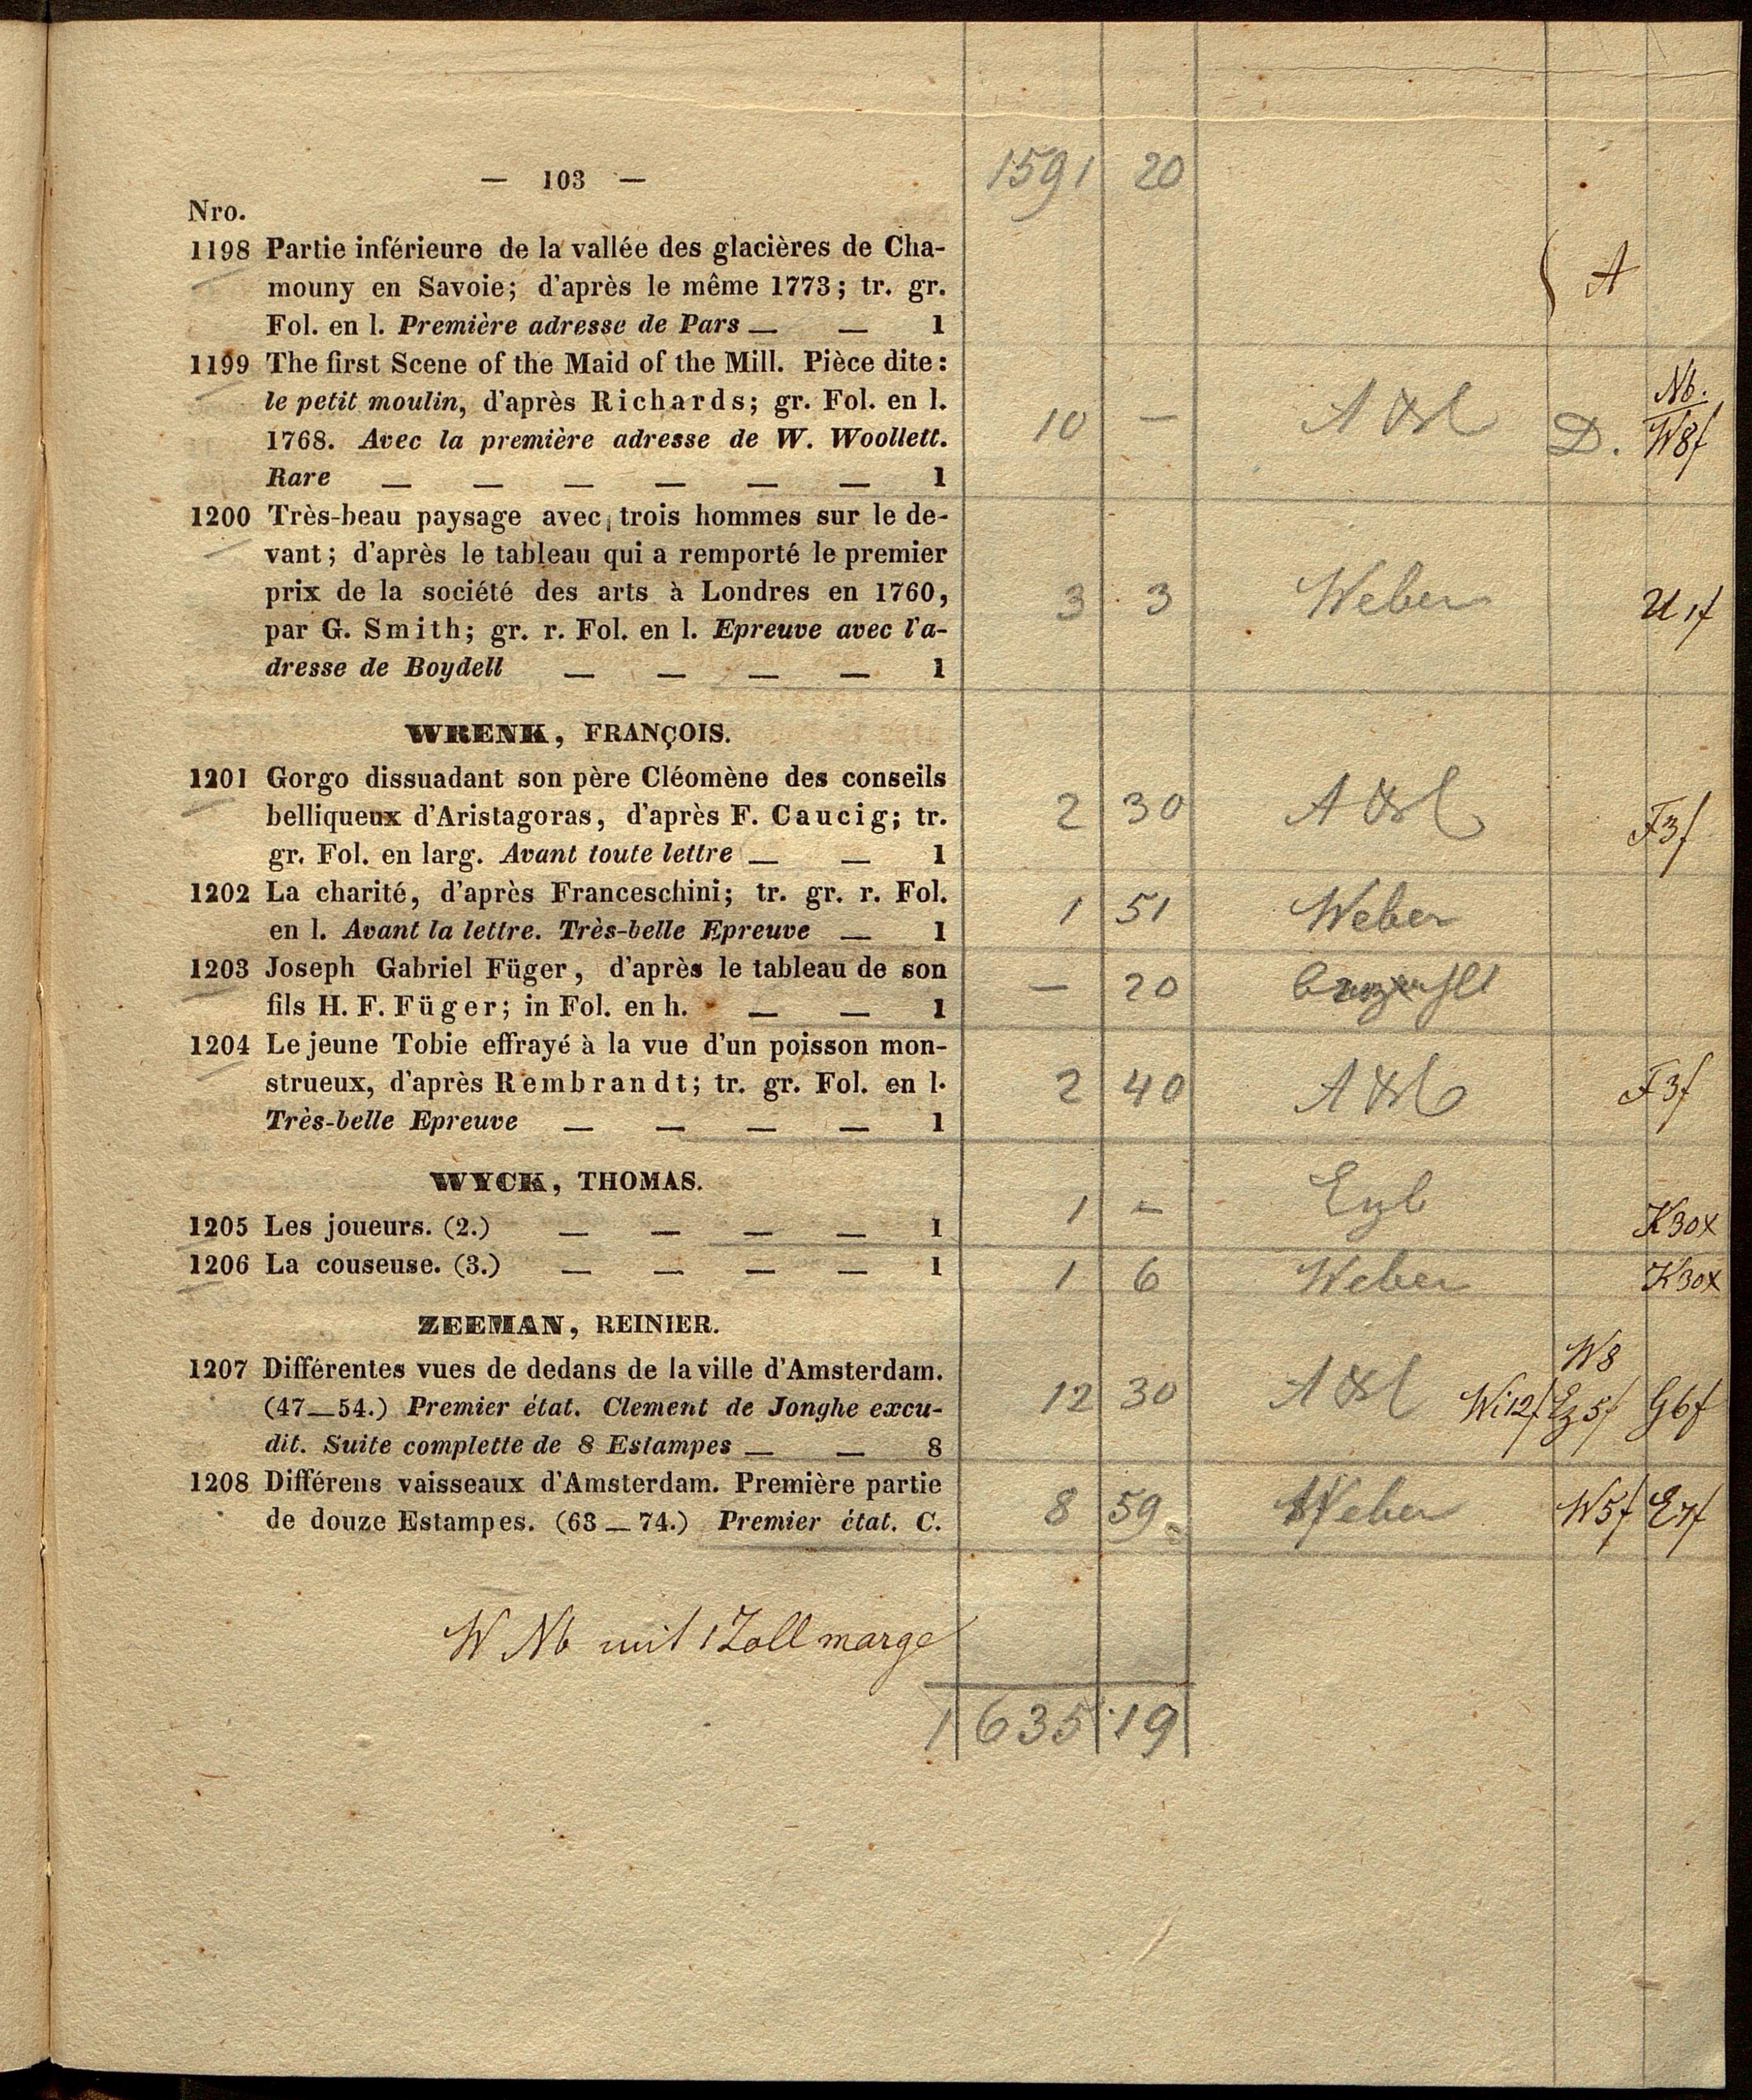 1591 20
— 103 —
Nro.
1198 Partie inférieure de la vallée des glacières de Cha-
mouny en Savoie; d'après le même 1773; tr. gr.
Fol. en l. Première adresse de Pars — — 1
A
1199 The first Scene of the Maid of the Mill. Pièce dite:
le petit moulin, d'après Richards; gr. Fol. en l.
1768. Avec la première adresse de W. Woollett.
Rare — — — — — — 1
10 — D. Nb. W8f
1200 Très-beau paysage avec trois hommes sur le de-
vant; d'après le tableau qui a remporté le premier
prix de la société des arts à Londres en 1760,
par G. Smith; gr. r. Fol. en l. Epreuve avec l'a-
dresse de Boydell — — — — 1
3 3 Weber U 1f
WRENK, FRANÇOIS.
1201 Gorgo dissuadant son père Cléomène des conseils
belliqueux d'Aristagoras, d'après F. Caucig; tr.
gr. Fol. en larg. Avant toute lettre — — 1
2 30 F3f
1202 La charité, d'après Franceschini; tr. gr. r. Fol.
en l. Avant la lettre. Très-belle Epreuve — 1
1 51 Weber
1203 Joseph Gabriel Füger, d'après le tableau de son
fils H. F. Füger; in Fol. en h. — — 1
— 20
1204 Le jeune Tobie effrayé à la vue d'un poisson mon-
strueux, d'après Rembrandt; tr. gr. Fol. en l.
Très-belle Epreuve — — — — 1
2 40 F3f
WYCK, THOMAS.
1205 Les joueurs. (2.) — — — — 1
1 — K30x
1206 La couseuse. (3.) — — — — 1
1 6 Weber K30x
ZEEMAN, REINIER.
1207 Différentes vues de dedans de la ville d'Amsterdam.
(47—54.) Premier état. Clement de Jonghe excu-
dit. Suite complette de 8 Estampes — — 8
12 30 Wi12f W8 G6f
1208 Différens vaisseaux d'Amsterdam. Première partie
de douze Estampes. (63—74.) Premier état. C.
8 59 Weber W5f E7f
W Nb mit 1 Zoll marge
1635 19